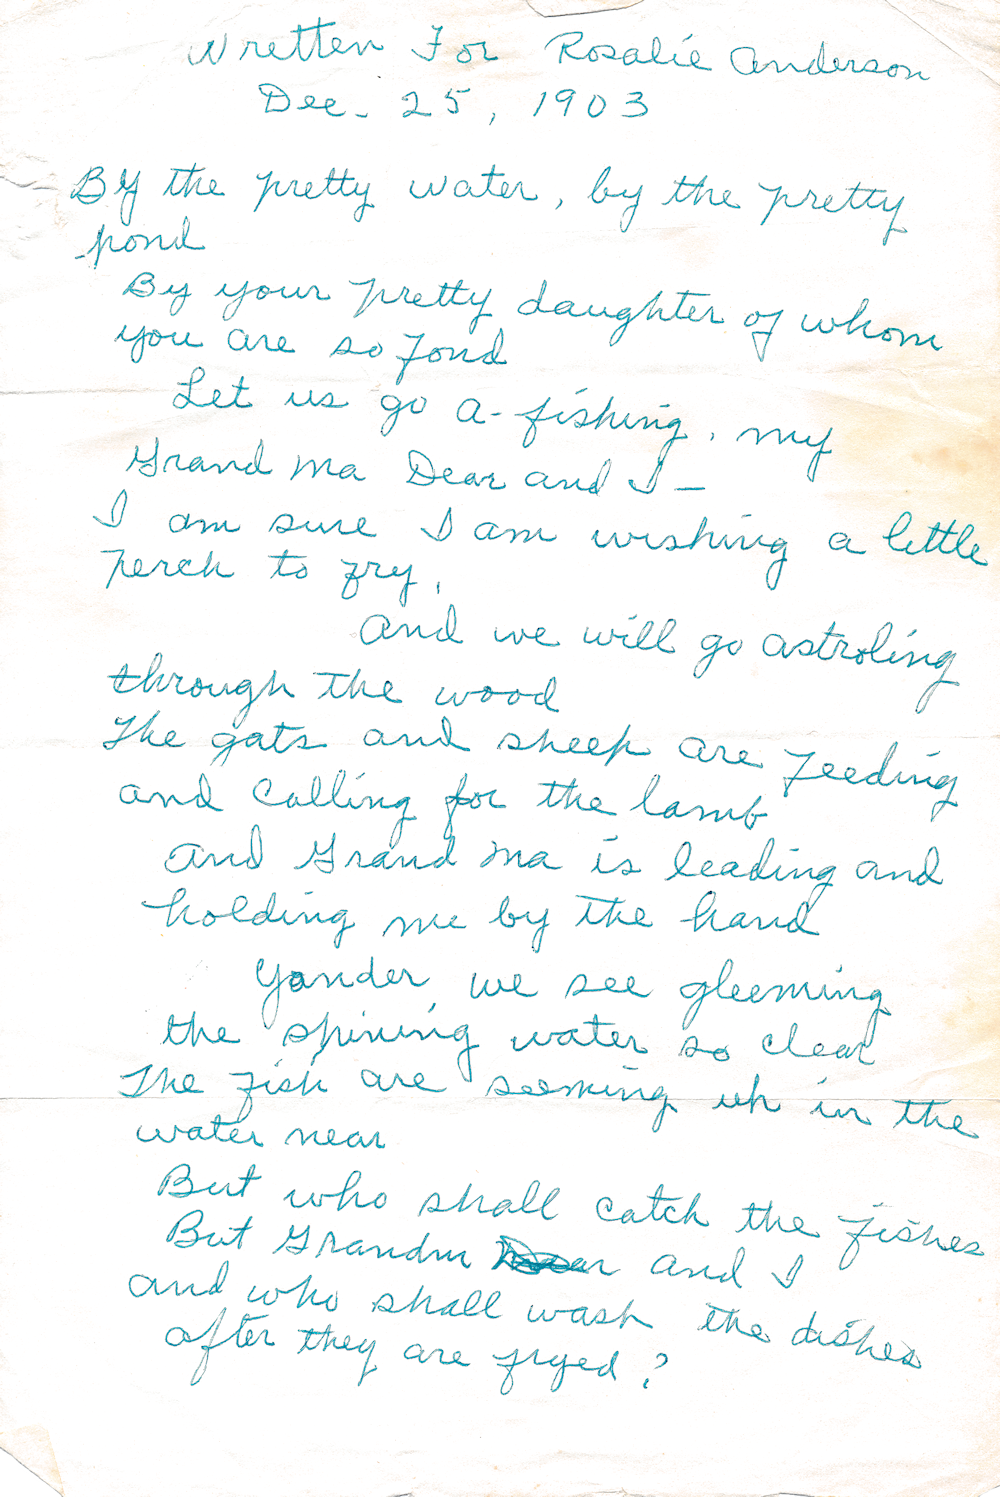 Wretten For Rosalie Anderson
Dec. 25, 1903
By the pretty water, by the pretty
pond
By your pretty daughter of whom
you are so fond
Let us go a-fishing, my
Grand ma Dear and I -
I am sure I am wishing a little
perch to fry,
And we will go astroling
through the wood
The gats and sheep are feeding
and calling for the lamb
And Grand ma is leading and
holding me by the hand
Yonder, we see gleeming
the spining water so clear
The fish are seeming uh in the
water near
But who shall catch the fishes
But Grandm and I
and who shall wash the dishes
after they are fryed?